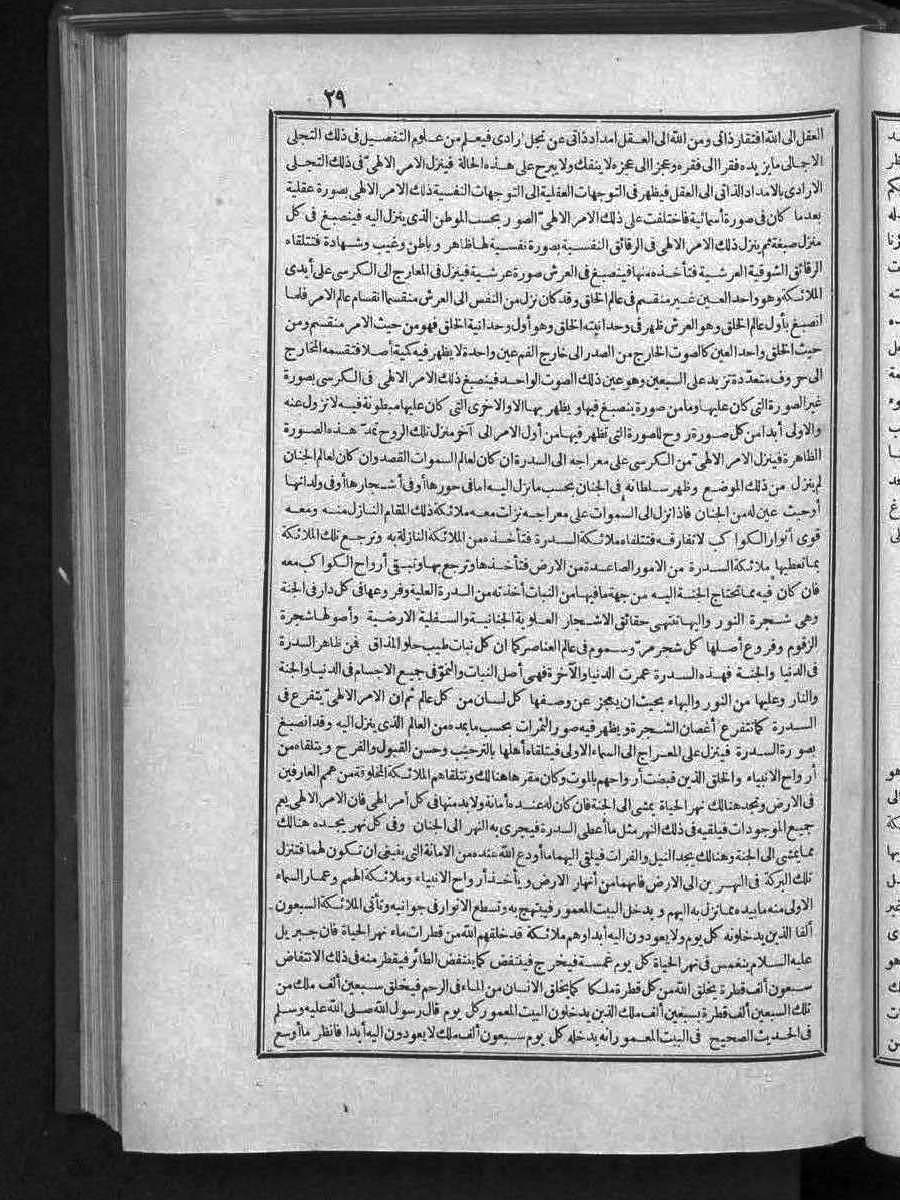 ٢٩
العقل الى الله افتقار ذاتى ومن الله الى العقل امداد ذاتى عن تجل ارادى فيعلم من علوم التفصيل فى ذلك التجلى
الاجمالى ما يزيده فقرا الى فقره وعجزا الى عجزه لا ينفك ولا يبرح على هذه الحالة فينزل الامر الالهى فى ذلك التجلى
الارادى بالامداد الذاتى الى العقل فيظهر فى التوجهات العقلية الى التوجهات النفسية ذلك الامر الالهى بصورة عقلية
بعدما كان فى صورة أسمائية فاختلفت على ذلك الامر الالهى الصور بحسب الموطن الذى ينزل اليه فينصبغ فى كل
منزل صبغة ثم ينزل ذلك الامر الالهى فى الرقائق النفسية بصورة نفسية لها ظاهر وباطن وغيب وشهادة فتتلقاه
الرقائق الشوقية العرشية فتأخذه منها فينصبغ فى العرش صورة عرشية فينزل فى المعارج الى الكرسى على أيدى
الملائكة وهو واحد العين غير منقسم فى عالم الخلق وقد كان نزل من النفس الى العرش منقسما انقسام عالم الامر فلما
انصبغ بأول عالم الخلق وهو العرش ظهر فى وحدانية الخلق وهو أول وحدانية الخلق فهو من حيث الامر منقسم ومن
حيث الخلق واحد العين كالصوت الخارج من الصدر الى خارج الفم عين واحدة لا يظهر فيه كمية أصلا فتقسمه المخارج
الى حروف متعددة تزيد على السبعين وهو عين ذلك الصوت الواحد فينصبغ ذلك الامر الالهى فى الكرسى بصورة
غير الصورة التى كان عليها وما من صورة ينصبغ فيها ويظهر بها الا والاخرى التى كان عليها مبطونة فيه لا تزول عنه
والاولى أبدا من كل صورة روح للصورة التى تظهر فيها من أول الامر الى آخر منزل تلك الروح تمد هذه الصورة
الظاهرة فينزل الامر الالهى من الكرسى على معراجه الى السدرة ان كان لعالم السموات القصد وان كان لعالم الجنان
لم ينزل من ذلك الموضع وظهر سلطانه فى الجنان بحسب ما نزل اليه اما فى حورها أو فى أشجارها أو فى ولدانها
أو حيث عين له من الجنان فاذا نزل الى السموات على معراجه نزلت معه ملائكة ذلك المقام النازل منه ومعه
قوى أنوار الكواكب لا تفارقه فتتلقاه ملائكة السدرة فتأخذه من الملائكة النازلة به وترجع تلك الملائكة
بما تعطيها ملائكة السدرة من الامور الصاعدة من الارض فتأخذها وترجع بها وتبقى أرواح الكواكب معه
فان كان فيه مما تحتاج الجنة اليه من جهة ما فيها من النبات أخذته من السدرة العلية وفروعها فى كل دار فى الجنة
وهى شجرة النور واليها تنتهى حقائق الاشجار العلوية الجنانية والسفلية الارضية وأصولها شجرة
الزقوم وفروع أصلها كل شجر مر وسموم فى عالم العناصر كما ان كل نبات طيب حلو المذاق فمن ظاهر السدرة
فى الدنيا والجنة فهذه السدرة عمرت الدنيا والآخرة فهى أصل النبات والنمو فى جميع الاجسام فى الدنيا والجنة
والنار وعليها من النور والبهاء بحيث ان يعجز عن وصفها كل لسان من كل عالم ثم ان الامر الالهى يتفرع فى
السدرة كما تتفرع أغصان الشجرة ويظهر فيه صور الثمرات بحسب ما يمده من العالم الذى ينزل اليه وقد انصبغ
بصورة السدرة فينزل على المعراج الى السماء الاولى فيتلقاه أهلها بالترحيب وحسن القبول والفرح ويتلقاه من
أرواح الانبياء والخلق الذين قبضت أرواحهم بالموت وكان مقرها هنالك وتتلقاهم الملائكة المخلوقة من همم العارفين
فى الارض وتجد هنالك نهر الحياة يمشى الى الجنة فان كان له عنده أمانة ولا بد منها فى كل أمر الهى فان الامر الالهى يعم
جميع الموجودات فيلقيه فى ذلك النهر مثل ما أعطى السدرة فيجرى به النهر الى الجنان وفى كل نهر يجده هنالك
مما يمشى الى الجنة وهنالك يجد النيل والفرات فيلقى اليهما ما أودع الله عنده من الامانة التى ينبغى ان تكون لهما فتنزل
تلك البركة فى النهرين الى الارض فانهما من أنهار الارض ويأخذ أرواح الانبياء وملائكة الهمم وعمار السماء
الاولى منه ما بيده مما نزل به اليهم ويدخل البيت المعمور فيبتهج به وتسطع الانوار فى جوانبه وتأتى الملائكة السبعون
ألفا الذين يدخلونه كل يوم ولا يعودون اليه أبدا وهم ملائكة قد خلقهم الله من قطرات ماء نهر الحياة فان جبريل
عليه السلام ينغمس فى نهر الحياة كل يوم غمسة فيخرج فينتفض كما ينتفض الطائر فيقطر منه فى ذلك الانتفاض
سبعون ألف قطرة يخلق الله من كل قطرة ملكا كما يخلق الانسان من الماء فى الرحم فيخلق سبعين ألف ملك من
تلك السبعين ألف قطرة سبعين ألف ملك الذين يدخلون البيت المعمور كل يوم قال رسول الله صلى الله عليه وسلم
فى الحديث الصحيح فى البيت المعمور انه يدخله كل يوم سبعون ألف ملك لا يعودون اليه أبدا فانظر ما أوسع